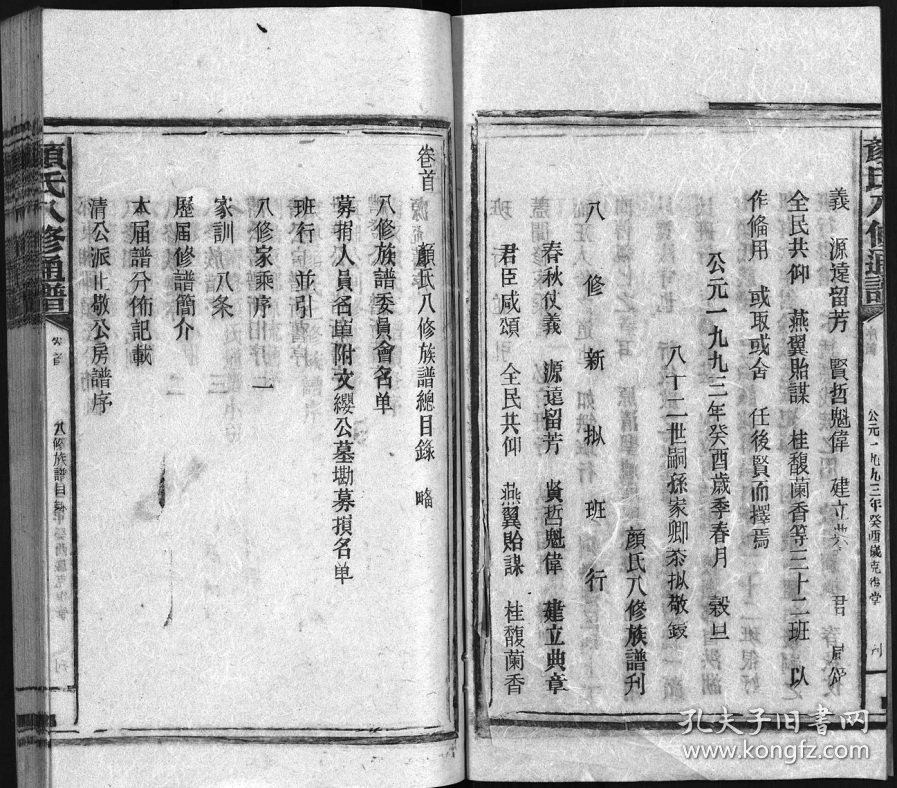 顏氏八修通譜
公元一九九三年癸酉歲克復堂
刊
義 源遠留芳 賢哲魁偉 建立 君
全民共仰 燕翼貽謀 桂馥蘭香等三十二班 以
作俻用 或取或舍 任後賢而擇焉
公元一九九三年癸酉歲季春月 穀旦
八十二世嗣孫家卿 擬敬
顏氏八修族譜刊
八修新拟班行
春秋仗義 源遠留芳 賢哲魁偉 建立典章
君臣咸頌 全民共仰 燕翼貽謀 桂馥蘭香
卷首 顏氏八修族譜總目錄 略
八修族譜委員會名单
募捐人員名單附文纓公墓勘募損名单
班行 並引
八修家乘序二
家訓 八条
歷届修譜簡介
本届譜分佈記載
清公派止敬公房譜序
顏氏八修通譜
卷首
八修族譜目錄
刊
孔夫子旧书网
www.kongfz.com